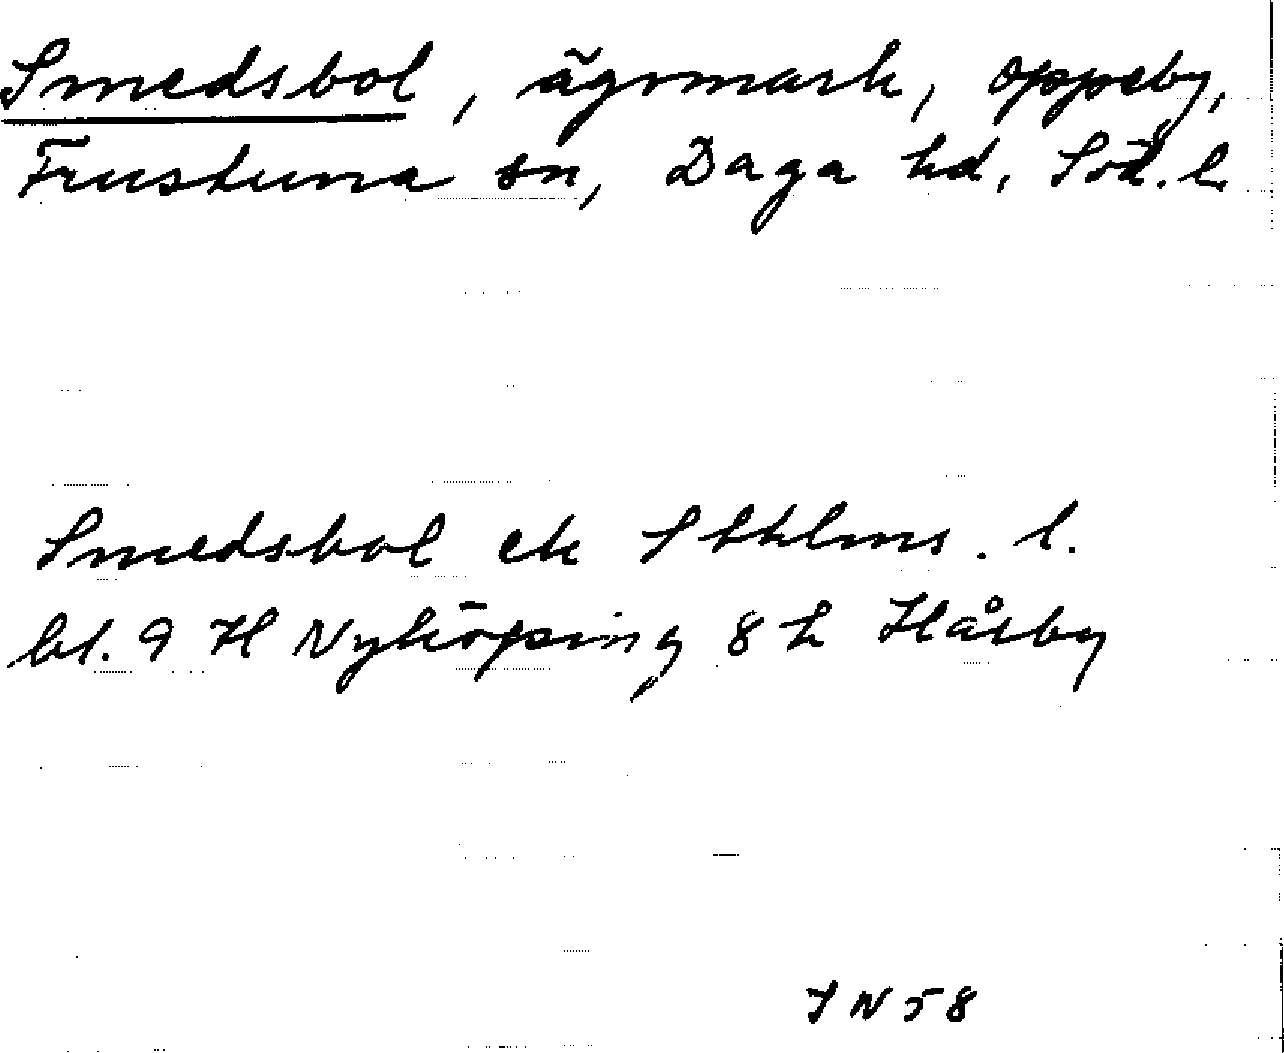 Smedsbol, ägomark, Oppeby,
Frustuna sn, Daga hd, Söd. l.
Smedsbol ek Sthlms. l.
bl. 9 H Nyköping 8 h Hårby
I N 58